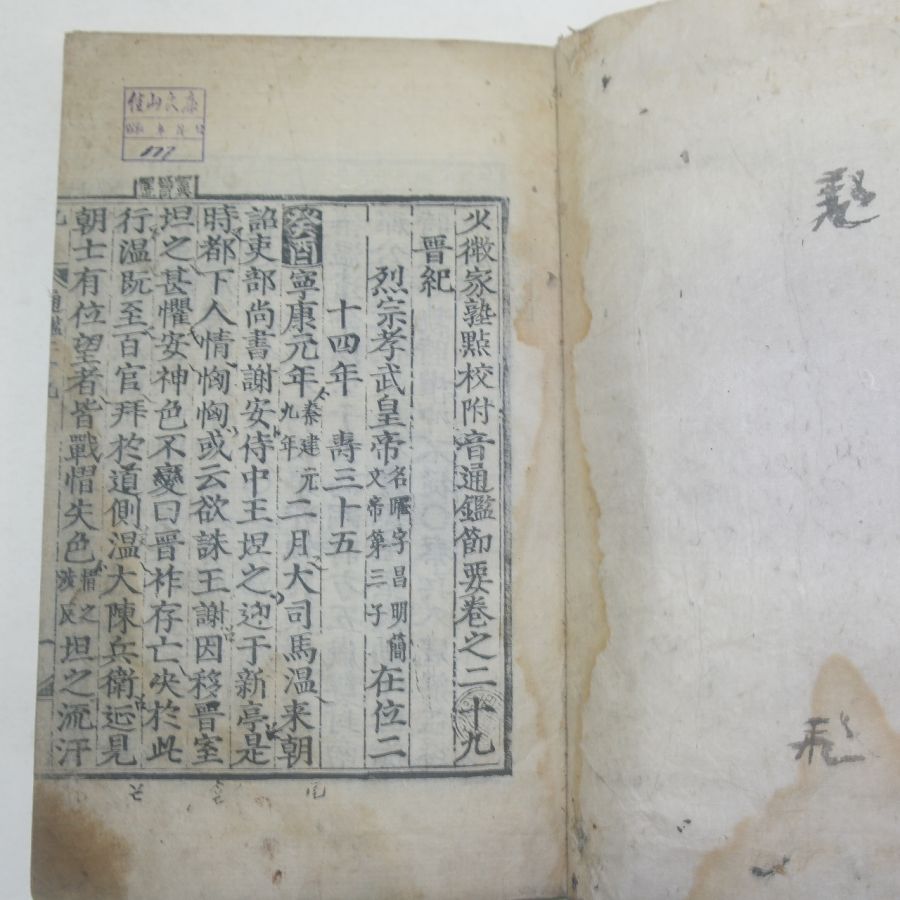 少微家塾點校附音通鑑節要卷之二十九
晋紀
烈宗孝武皇帝名曜字昌明簡文帝第三子在位二
十四年 壽三十五
癸酉寧康元年秦建元九年二月大司馬温来朝
詔吏部尚書謝安侍中王坦之迎于新亭是
時都下人情恟恟或云欲誅王謝因移晋室
坦之甚懼安神色不變曰晋祚存亡决於此
行温旣至百官拜於道側温大陳兵衛延見
朝士有位望者皆戰慴失色慴之涉反坦之流汗